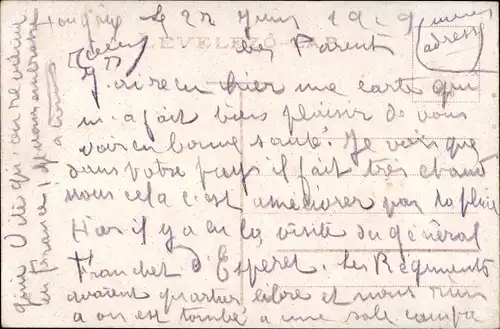 Hongrie Le 22 Juin 1919
LEVELEZŐ-LAP
adresse
Chers Parents
J'ai recu hier une carte qui
m'a fait bien plaisir de vous
voir en bonne santé. Je vois que
dans votre pays il fait très chaud
nous cela c'est améliorer par la pluie
Hier il y a eu la visite du général
Franchet d'Esperet. Les Régiments
avaient quartier libre et nous rien
on est tombé a une sale compie
Vite qu'on revienne
en France